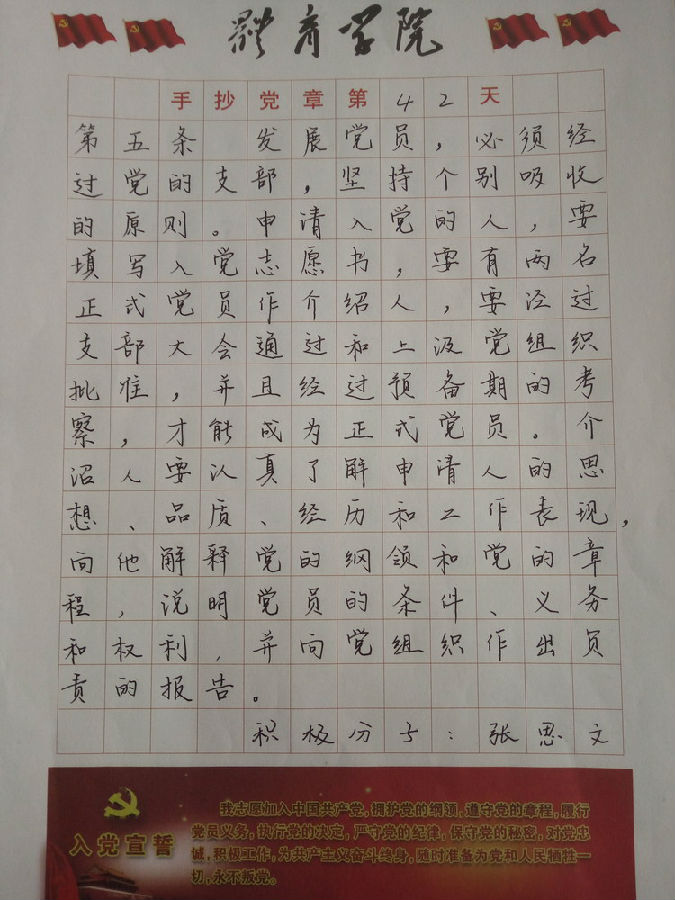 體育学院
手抄党章第42天
第五条 发展党员，必须经
过党的支部，坚持个别吸收
的原则。申请入党的人，要
填写入党志愿书，要有两名
正式党员作介绍人，要泾过
支部大会通过和上级党组织
批准，并且经过预备期的考
察，才能成为正式党员。介
沼人要认真了解申请人的思
想、品质、经历和工作表现，
向他解释党的纲领和党的章
程，说明党员的条件、义务
和权利，并向党组织作出员
责的报告。
积极分子：张思文
入党宣誓
我志愿加入中国共产党，拥护党的纲领，遵守党的章程，履行
党员义务，执行党的决定，严守党的纪律，保守党的秘密，对党忠
诚，积极工作，为共产主义奋斗终身，随时准备为党和人民牺牲一
切，永不叛党。